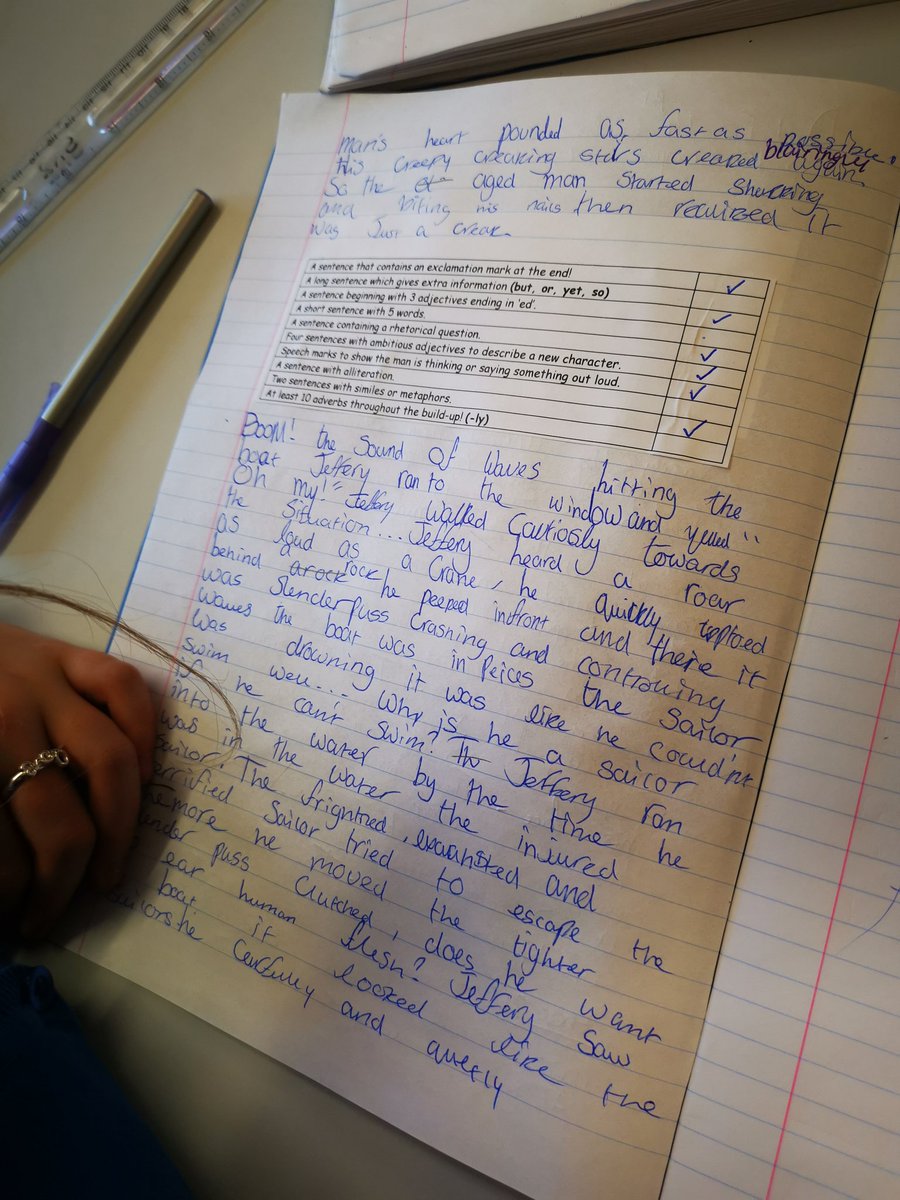 Man's heart pounded as fast as possible.
this creepy creaking stars creaped blaringly again
So the aged man Started Shercking
and biting his nails then reculized It
was Just a Creak
A sentence that contains an exclamation mark at the end!
A long sentence which gives extra information (but, or, yet, so)
A sentence beginning with 3 adjectives ending in 'ed'.
A short sentence with 5 words.
A sentence containing a rhetorical question.
Four sentences with ambitious adjectives to describe a new character.
Speech marks to show the man is thinking or saying something out loud.
A sentence with alliteration.
Two sentences with similes or metaphors.
At least 10 adverbs throughout the build-up! (-ly)
BOOM! the Sound of Waves hitting the
boat Jeffery ran to the window and yelled "
Oh my!" Jeffery walked Cautiosly towards
the Situation... Jeffery heard a roar
as loud as a Crane, he quickly
behind a arock rock he peeped infront and there it
was Slenderpuss Crashing and controuing
waves The boat was in peices the Sailor
was drowning it was like he Coudn't
Swim well... Why is he a sailor
if he can't Swim? Jeffery ran
into the water by the time he
was in the water the injured
Sailor The frightned, exauhsted and
terrified Sailor tried to escape the
the more he moved the tighter
Slender puss clutched, does he want
to ear human flesh? Jeffery Saw
boat it looked like the
Sailors he Carfully and quetly